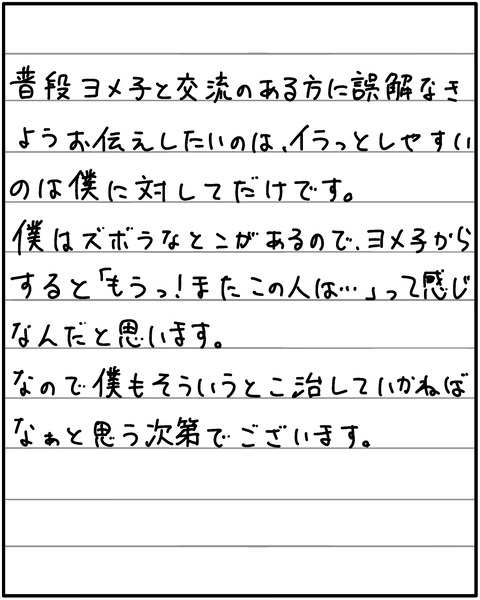 普段ヨメ子と交流のある方に誤解なき
ようお伝えしたいのは、イラっとしやすい
のは僕に対してだけです。
僕はズボラなとこがあるので、ヨメ子から
すると「もうっ!またこの人は…」って感じ
なんだと思います。
なので僕もそういうとこ治していかねば
なぁと思う次第でございます。